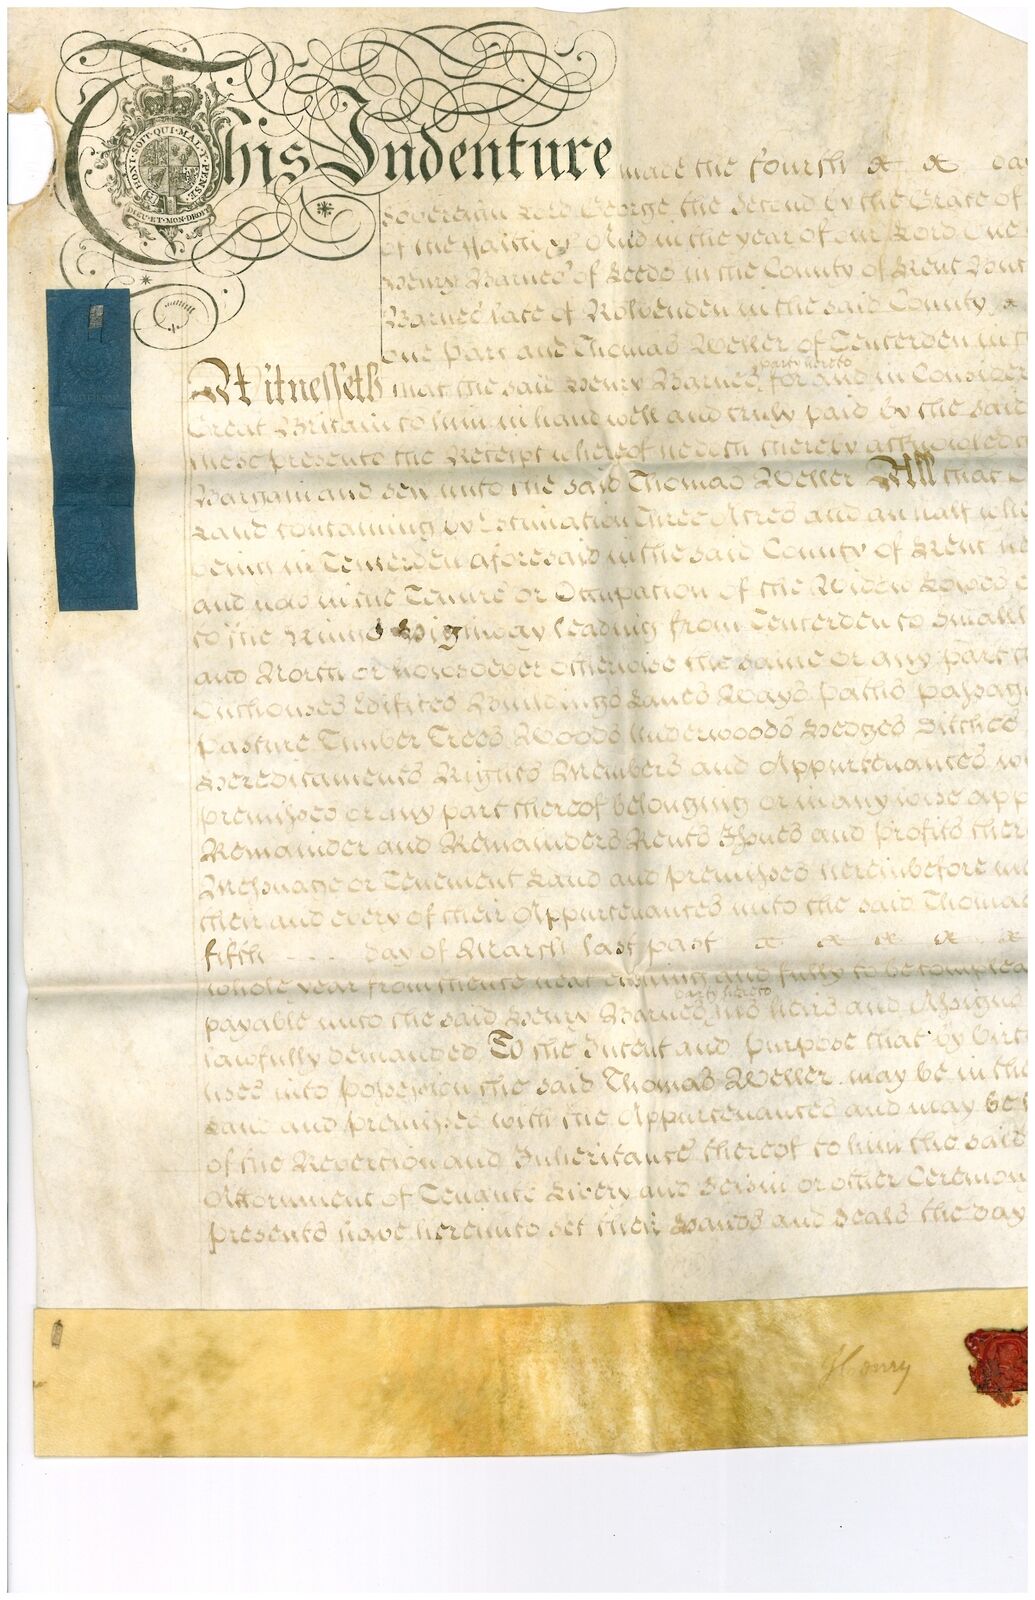 This Indenture made the fourth & & day
Sovereign Lord George the Second by the Grace of
of the Faith & And in the year of our Lord One
Henry Barnes of Leeds in the County of Kent
Barnes late of Rolvenden in the said County &
one Part and Thomas Weller of Tenterden in
party hereto
Witnesseth that the said Henry Barnes for and in Consider
Great Britain to him in hand well and truly paid by the said
these presents the Receipt whereof he doth hereby acknowledge
Bargain and Sell unto the said Thomas Weller All that
Land containing by Estimation Three Acres and an half
being in Tenterden aforesaid in the said County of Kent
and now in the Tenure or Occupation of the Widow
to the Kings Highway leading from Tenterden to Small
and North or howsoever otherwise the same or any part
Outhouses Edifices Buildings Lanes Ways Paths Passag
Pasture Timber Trees Woods Underwoods Hedges Ditches
Hereditaments Rights Members and Appurtenances
premisses or any part thereof belonging or in any wise app
Remainder and Remainders Rents Issues and Profits ther
Messuage or Tenement Land and premisses hereinbefore
their and every of their Appurtenances unto the said Thomas
fifth day of March last past & & & & &
whole year from thence next ensuing and fully to be complea
party hereto
payable unto the said Henry Barnes his heirs and Assigns
lawfully demanded To the Intent and purpose that by Virt
uses into Possession the said Thomas Weller may be in the
Land and premisses with the Appurtenances and may be
of the Reversion and Inheritance thereof to him the said
Attornment of Tenants Livery and Seisin or other Ceremony
Presents have hereunto set their Hands and Seals the day
Henry
HONI·SOIT·QUI·MAL·Y·PENSE
DIEU·ET·MON·DROIT